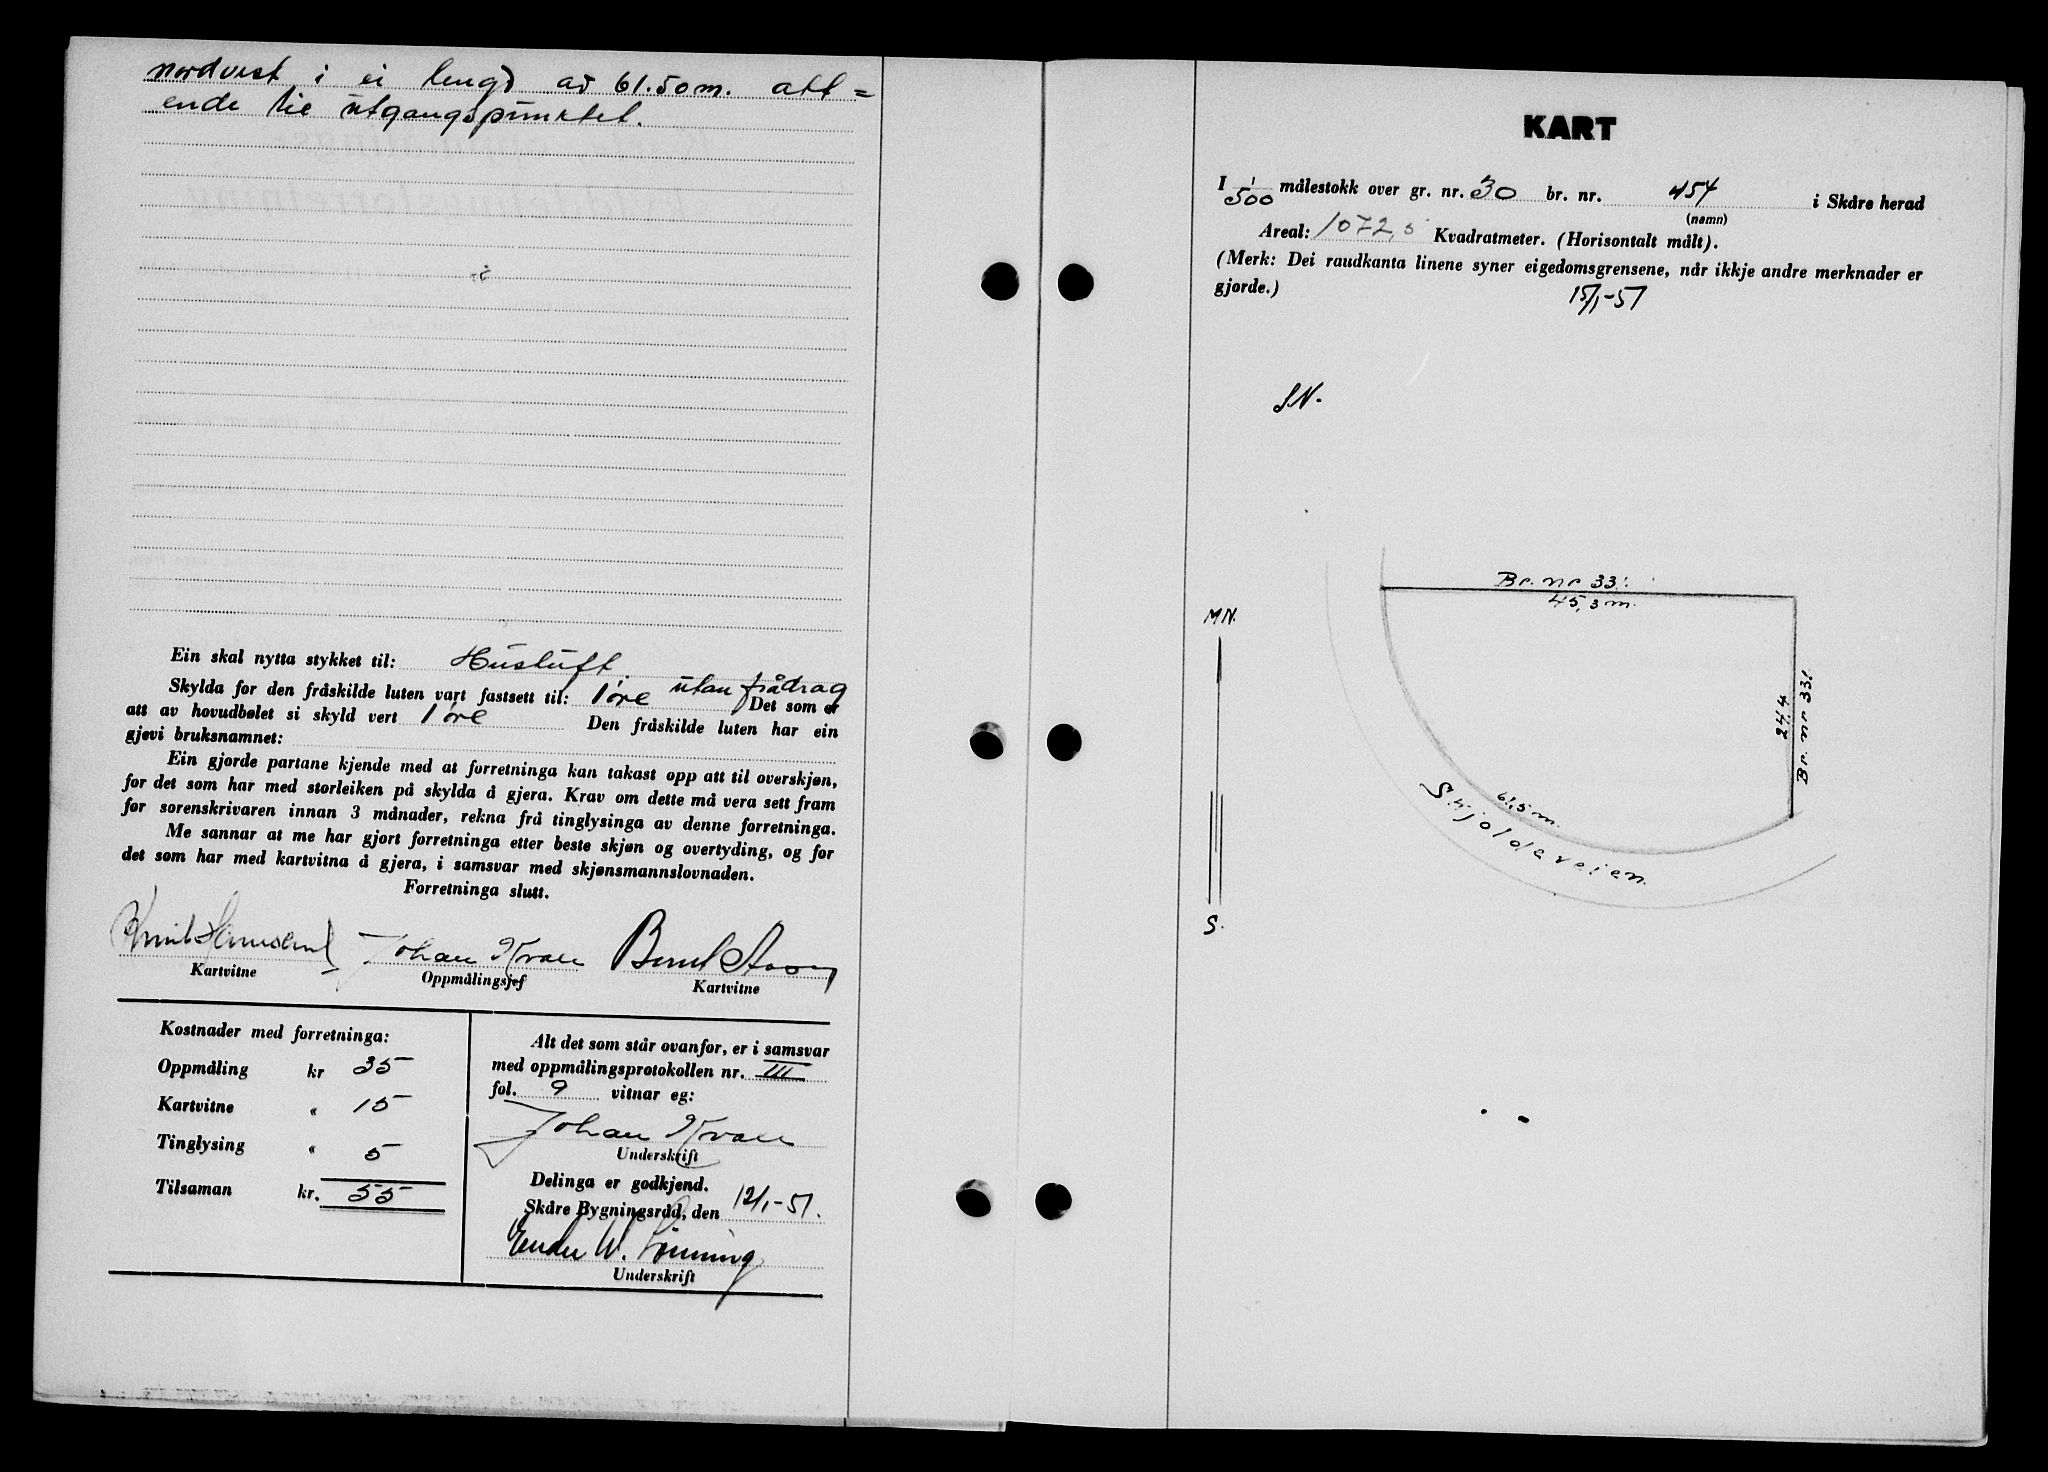 nordvest i ei lengd av 61.50 m. att =
ende til utgangspunktet.
Ein skal nytta stykket til: Hustuft
Skylda for den fråskilde luten vart fastsett til: 1 øre utan frådrag Det som er
att av hovudbølet si skyld vert 1 øre Den fråskilde luten har ein
gjevi bruksnamnet:
Ein gjorde partane kjende med at forretninga kan takast opp att til overskjøn,
for det som har med storleiken på skylda å gjera. Krav om dette må vera sett fram
for sorenskrivaren innan 3 månader, rekna frå tinglysinga av denne forretninga.
Me sannar at me har gjort forretninga etter beste skjøn og overtyding, og for
det som har med kartvitna å gjera, i samsvar med skjønsmannslovnaden.
Forretninga slutt.
Johan Kvale
Kartvitne Oppmålingsjef Kartvitne
Kostnader med forretninga:
Oppmåling kr 35
Kartvitne " 15
Tinglysing " 5
Tilsaman kr. 55
Alt det som står ovanfor, er i samsvar
med oppmålingsprotokollen nr. III
fol. 9 vitnar eg:
Johan Kvale
Underskrift
Delinga er godkjend.
Skåre Bygningsråd, den 12/1-51.
W. Lønning
Underskrift
KART
I 1/500 målestokk over gr. nr. 30 br. nr. 454 i Skåre herad
(namn)
Areal: 1072,5 Kvadratmeter. (Horisontalt målt).
(Merk: Dei raudkanta linene syner eigedomsgrensene, når ikkje andre merknader er
gjorde.)
15/1-51
S.N.
MN.
S.
Br. nr 331
45,3 m.
24,4
Br. nr 331
61,5 m.
Skjoldaveien